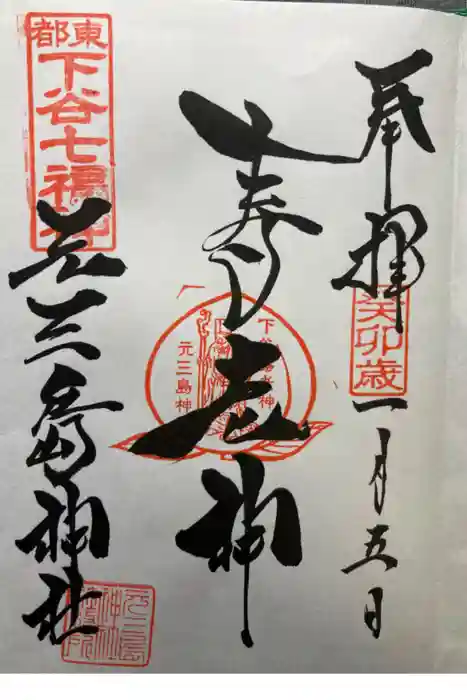 奉拝
癸卯歳
一月五日
寿老神
下谷
元三島神
東都
下谷七福神
元三島神社
元三島
神社